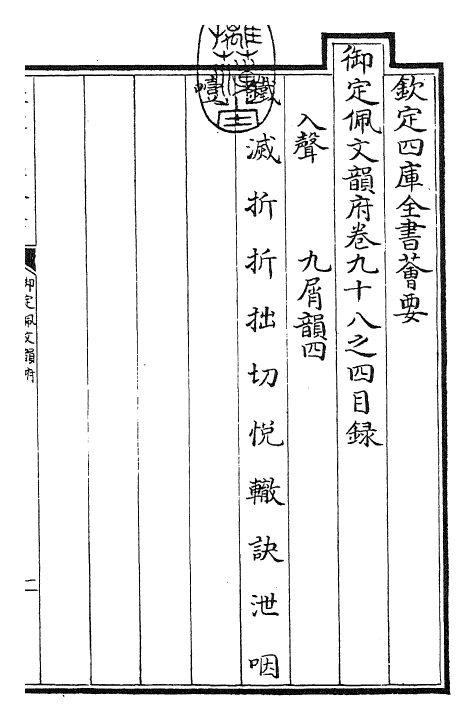 欽定四庫全書薈要
御定佩文韻府卷九十八之四目録
入聲 九屑韻四
鐵滅折折拙切悅轍訣泄咽
噎
御定佩文韻府